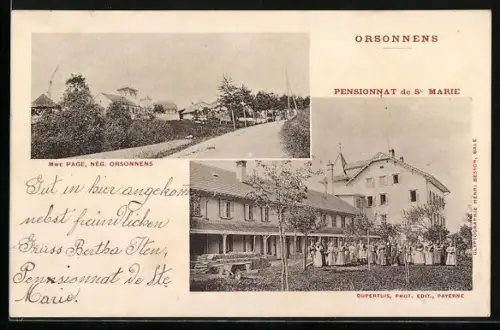 ORSONNENS
PENSIONNAT de Ste MARIE
Mme PAGE, NÉG. ORSONNENS
Gut in hier angekom̅
nebst freundlichen
Gruss Bertha Iten,
Pensionnat de Ste
Marie.
GLYPTOGRAPHIE HENRI BESSON, BALE.
DUPERTUIS, PHOT. EDIT., PAYERNE